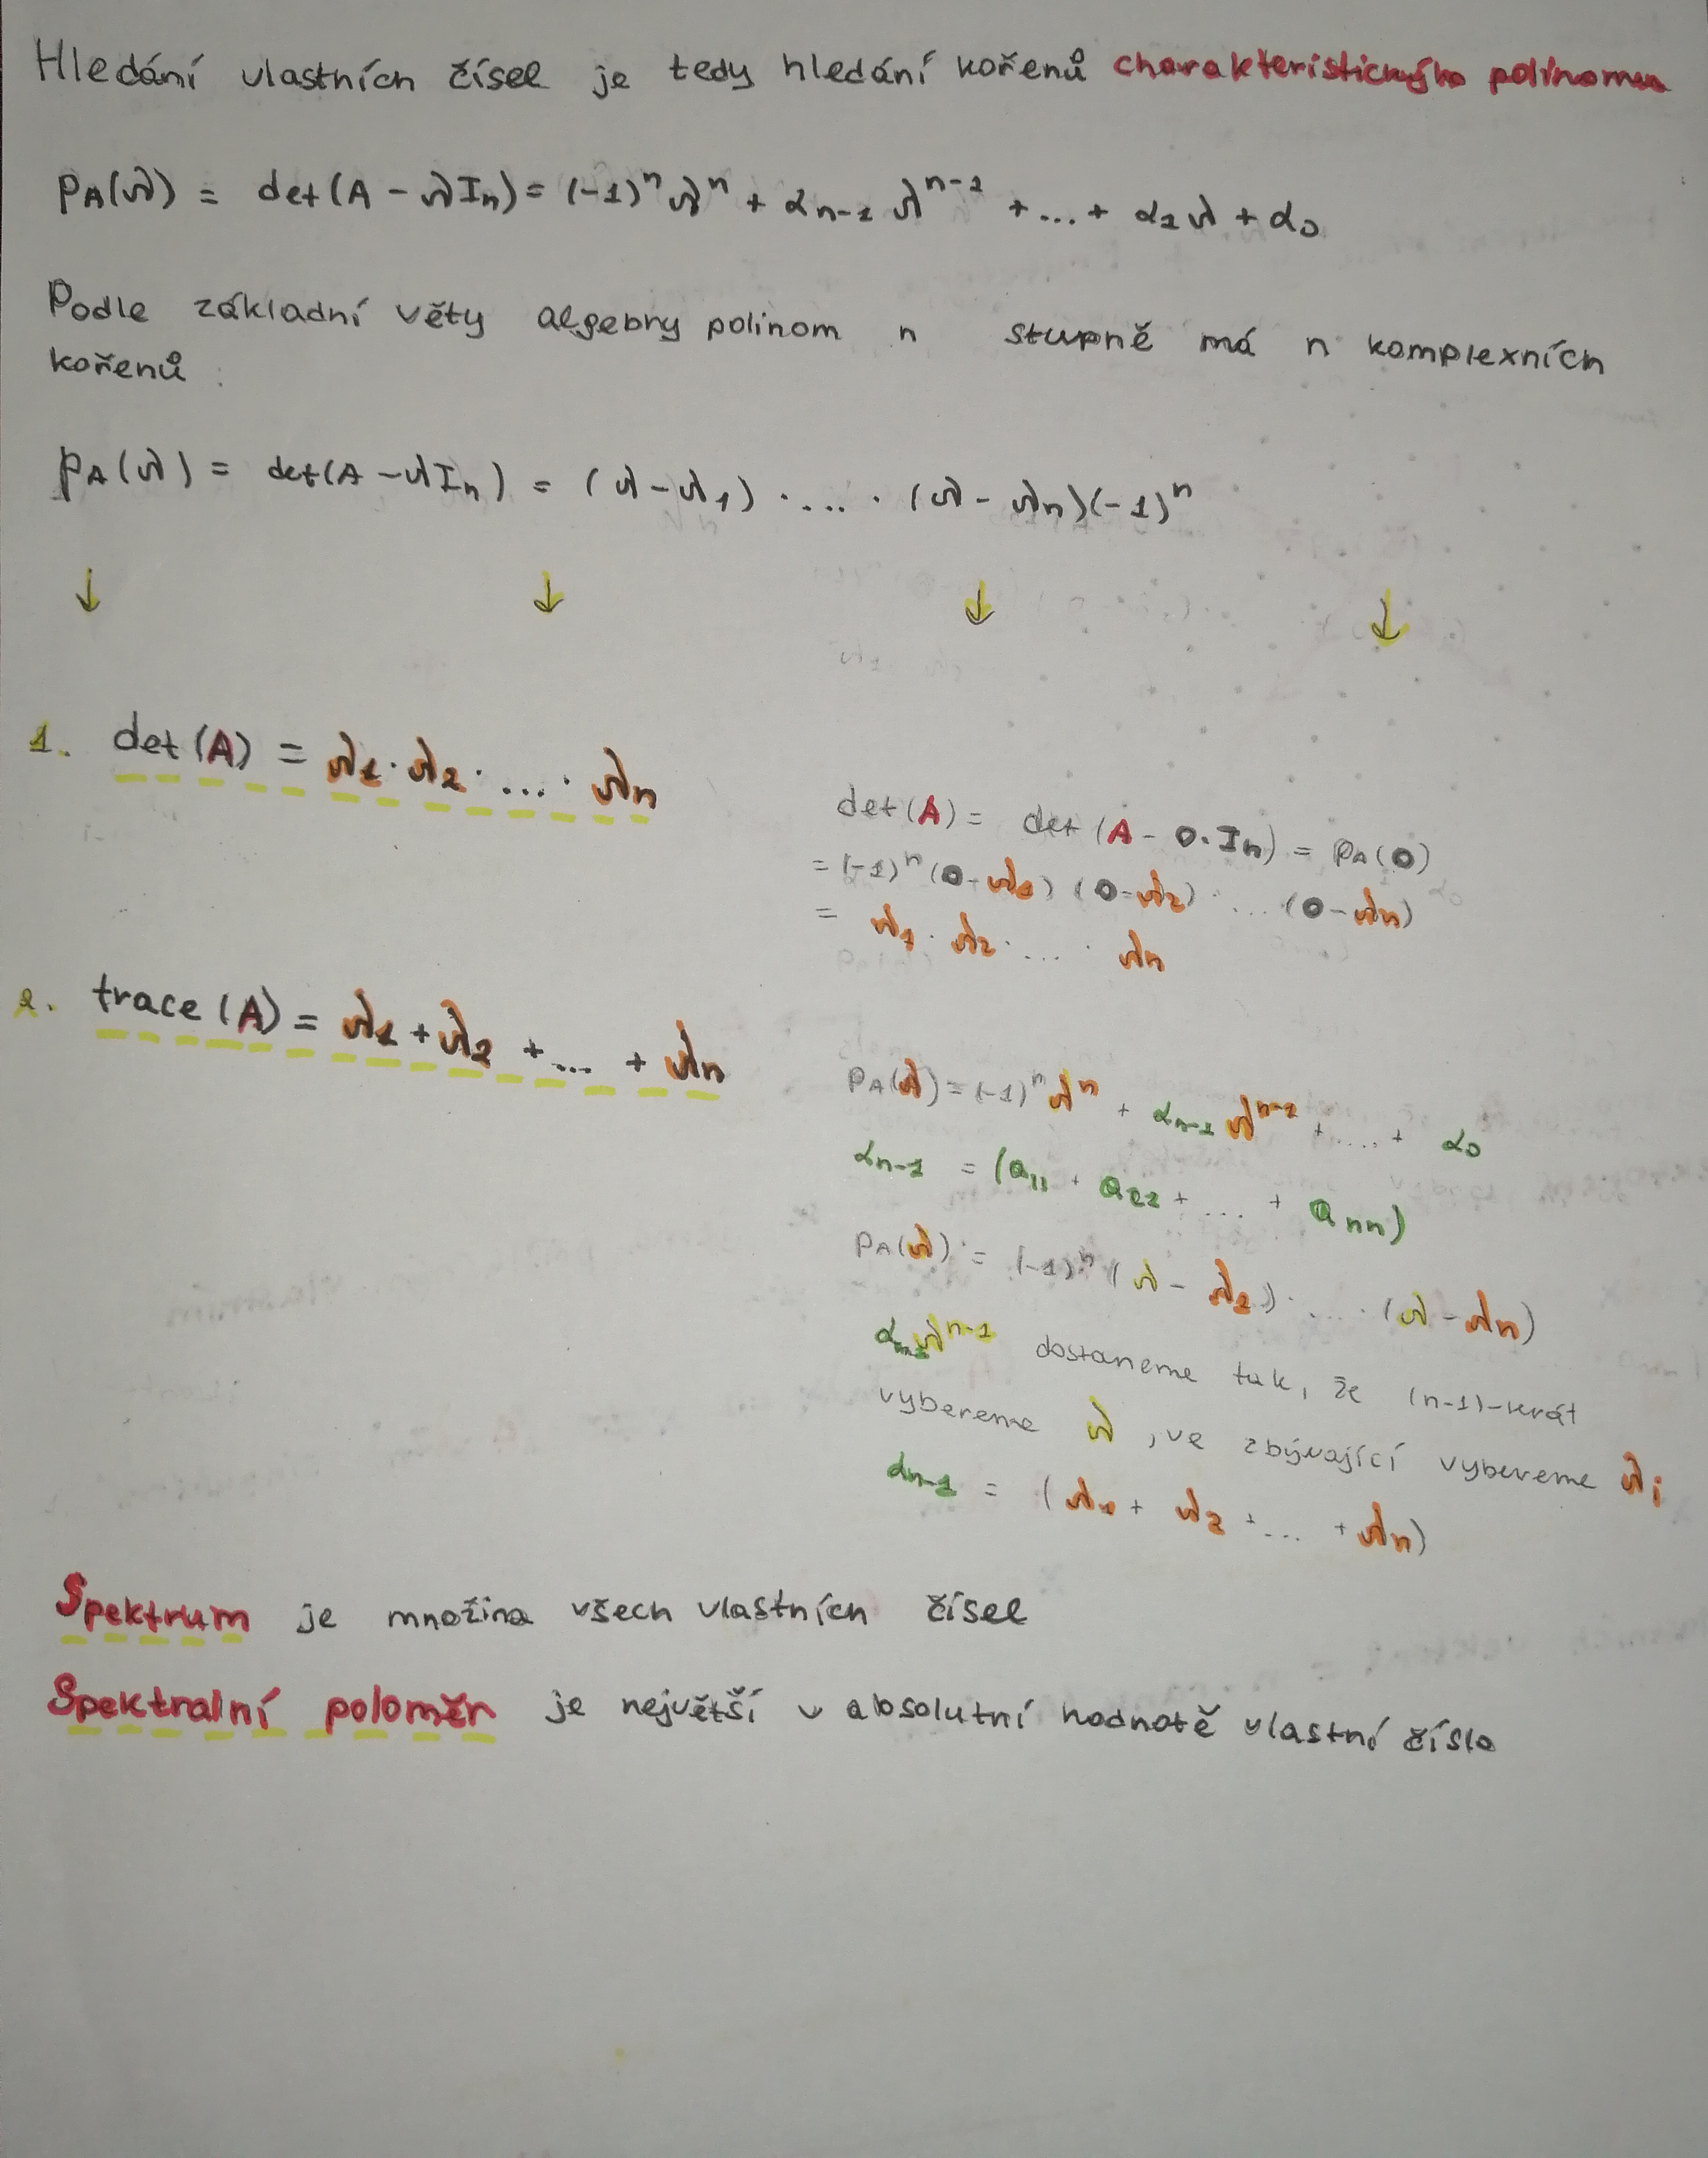 Hledání vlastních čísel je tedy hledání kořenů charakteristického polinomu
pA(λ) = det(A - λIn) = (-1)^n λ^n + αn-1 λ^n-1 + ... + α1λ + α0
Podle základní věty algebry polinom n stupně má n komplexních
kořenů :
pA(λ) = det(A - λIn) = (λ - λ1) · .... · (λ - λn)(-1)^n
↓ ↓ ↓ ↓
1. det(A) = λ1 · λ2 · ... · λn
det(A) = det(A - 0·In) = pA(0)
= (-1)^n (0 - λ1) (0 - λ2) · ... (0 - λn)
= λ1 · λ2 · ... · λn
2. trace(A) = λ1 + λ2 + ... + λn
pA(λ) = (-1)^n λ^n + αn-1 λ^n-1 + .... + α0
αn-1 = (a11 + a22 + ... + ann)
pA(λ) = (-1)^n (λ - λ1) · ... · (λ - λn)
αn-1 λ^n-1 dostaneme tak, že (n-1)-krát
vybereme λ , ve zbývající vybereme λi
αn-1 = (λ1 + λ2 + ... + λn)
Spektrum je množina všech vlastních čísel
Spektralní poloměr je největší v absolutní hodnotě vlastní číslo